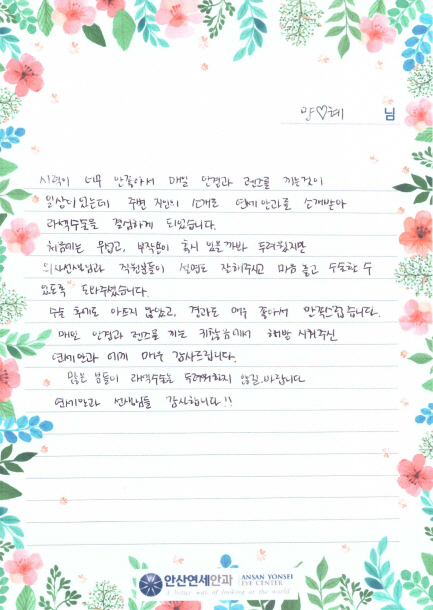 양♡혜 님
시력이 너무 안좋아서 매일 안경과 렌즈를 끼는것이
일상이었는데 주변 지인의 소개로 연세안과를 소개받아
라섹수술을 결정하게 되었습니다.
처음에는 무섭고, 부작용이 혹시 있을까봐 두려웠지만
의사선생님과 직원분들이 설명도 잘해주시고 마음 놓고 수술할 수
있도록 도와주셨습니다.
수술 후에도 아프지 않았고, 결과도 매우 좋아서 만족스럽습니다.
매일 안경과 렌즈를 끼는 귀찮음에서 해방 시켜주신
연세안과 에게 매우 감사드립니다.
많은 분들이 라섹수술을 두려워하지 않길 바랍니다
연세안과 선생님들 감사합니다!!
안산연세안과 ANSAN YONSEI
EYE CENTER
A better way of looking at the world